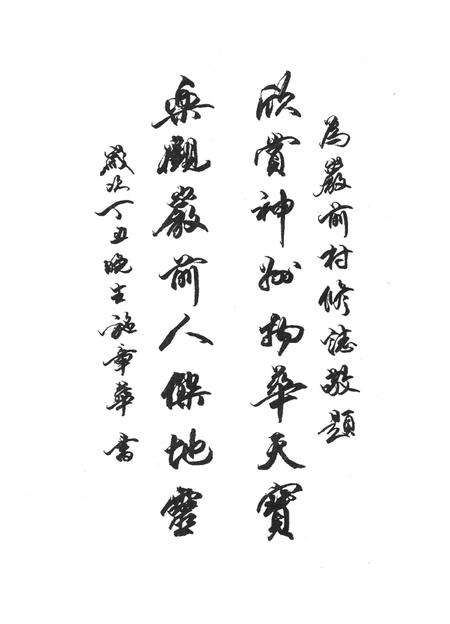 為嚴前村修誌敬題
欣賞神州物華天寶
樂觀嚴前人傑地靈
歲次丁丑晚生施章華書